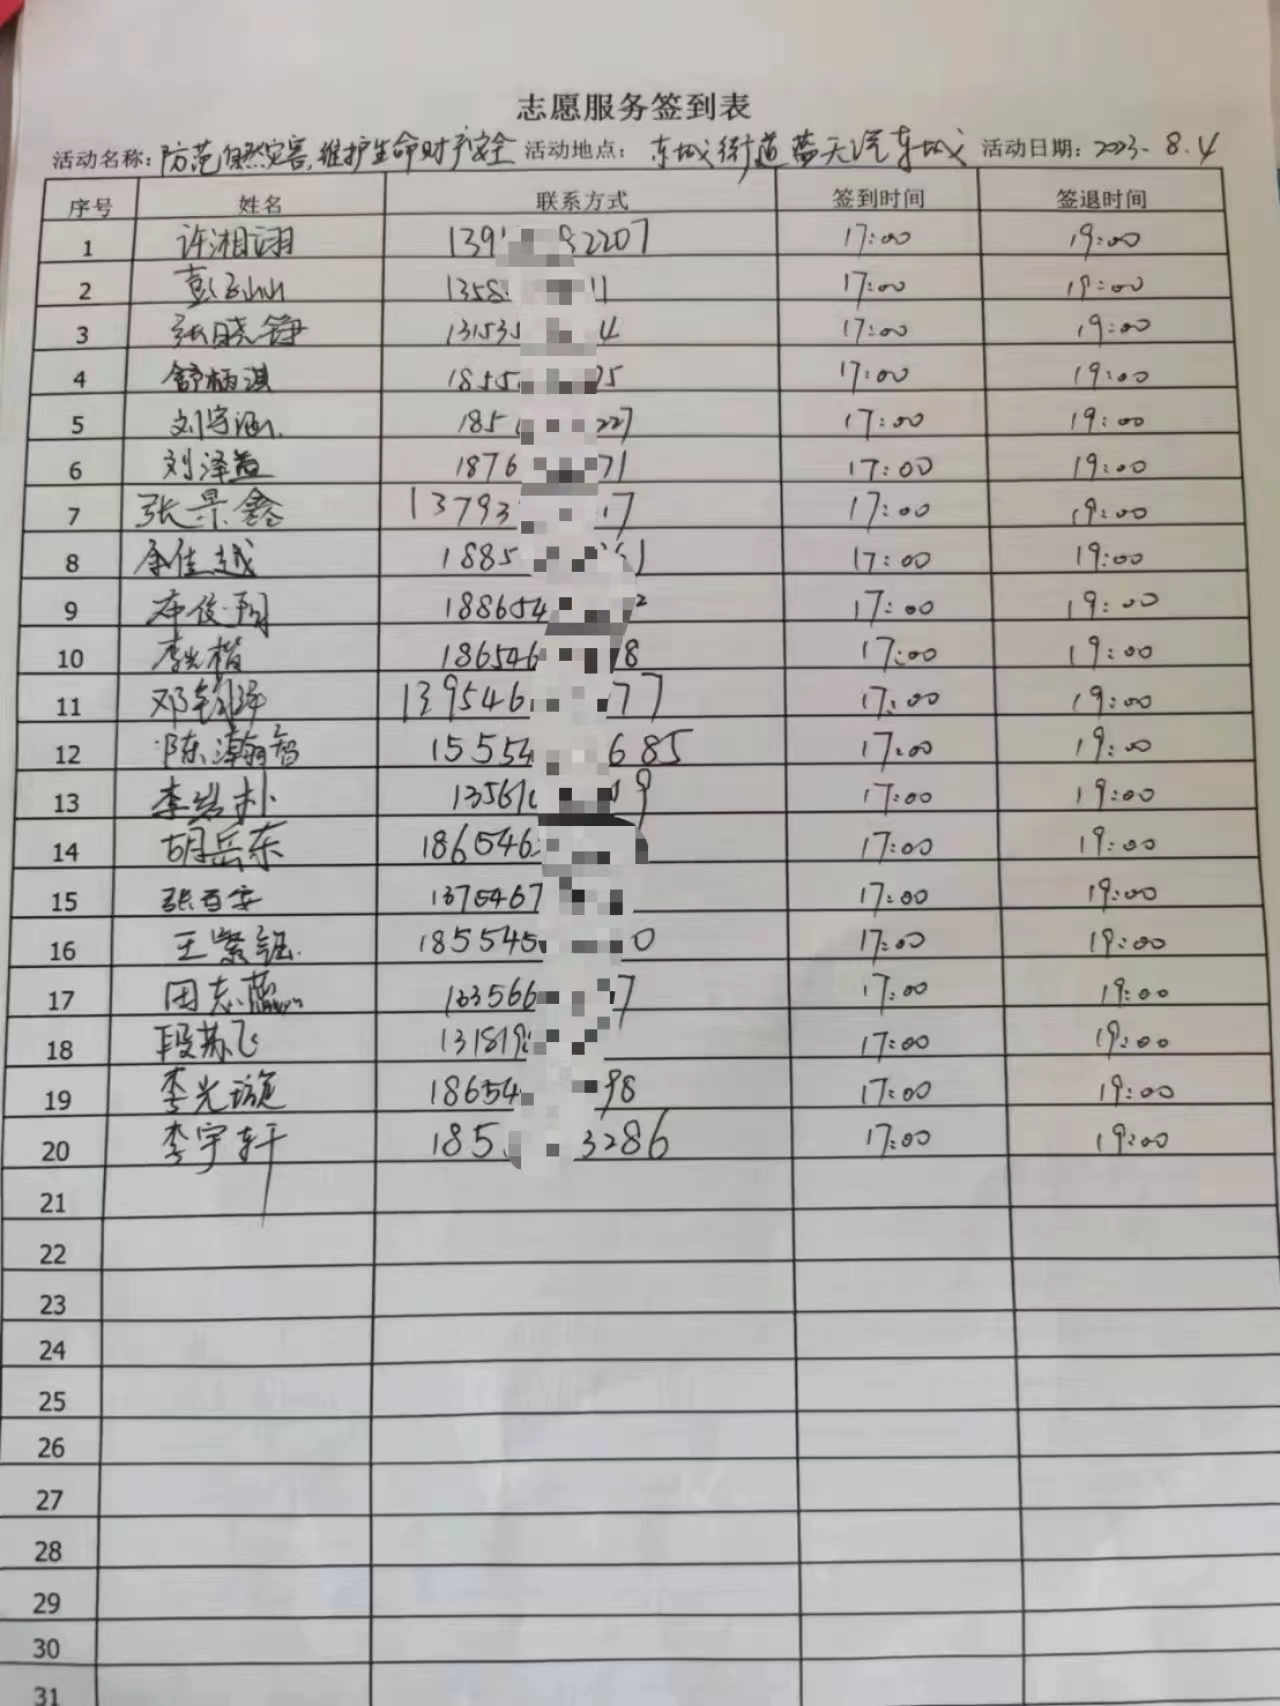 志愿服务签到表
活动名称：防范自然灾害,维护生命财产安全 活动地点：东城街道蓝天汽车城 活动日期：2023.8.4
序号 姓名 联系方式 签到时间 签退时间
1 许湘翊 139 82207 17:00 19:00
2 彭 1358 11 17:00 19:00
3 张晓铮 13153 4 17:00 19:00
4 舒柄淇 1855 75 17:00 19:00
5 刘宇涵 185 227 17:00 19:00
6 刘泽益 1876 71 17:00 19:00
7 张景鑫 13793 17 17:00 19:00
8 佳越 1885 1 17:00 19:00
9 俊翔 188654 2 17:00 19:00
10 李光楷 186546 8 17:00 19:00
11 邓 139546 77 17:00 19:00
12 陈瀚智 15554 685 17:00 19:00
13 李 朴 1356 9 17:00 19:00
14 胡岳东 186546 17:00 19:00
15 张百安 1375467 17:00 19:00
16 王紫钰 185545 0 17:00 19:00
17 田志 133566 7 17:00 19:00
18 段苏飞 131819 17:00 19:00
19 李光璇 18654 98 17:00 19:00
20 李宇轩 185 3286 17:00 19:00
21
22
23
24
25
26
27
28
29
30
31